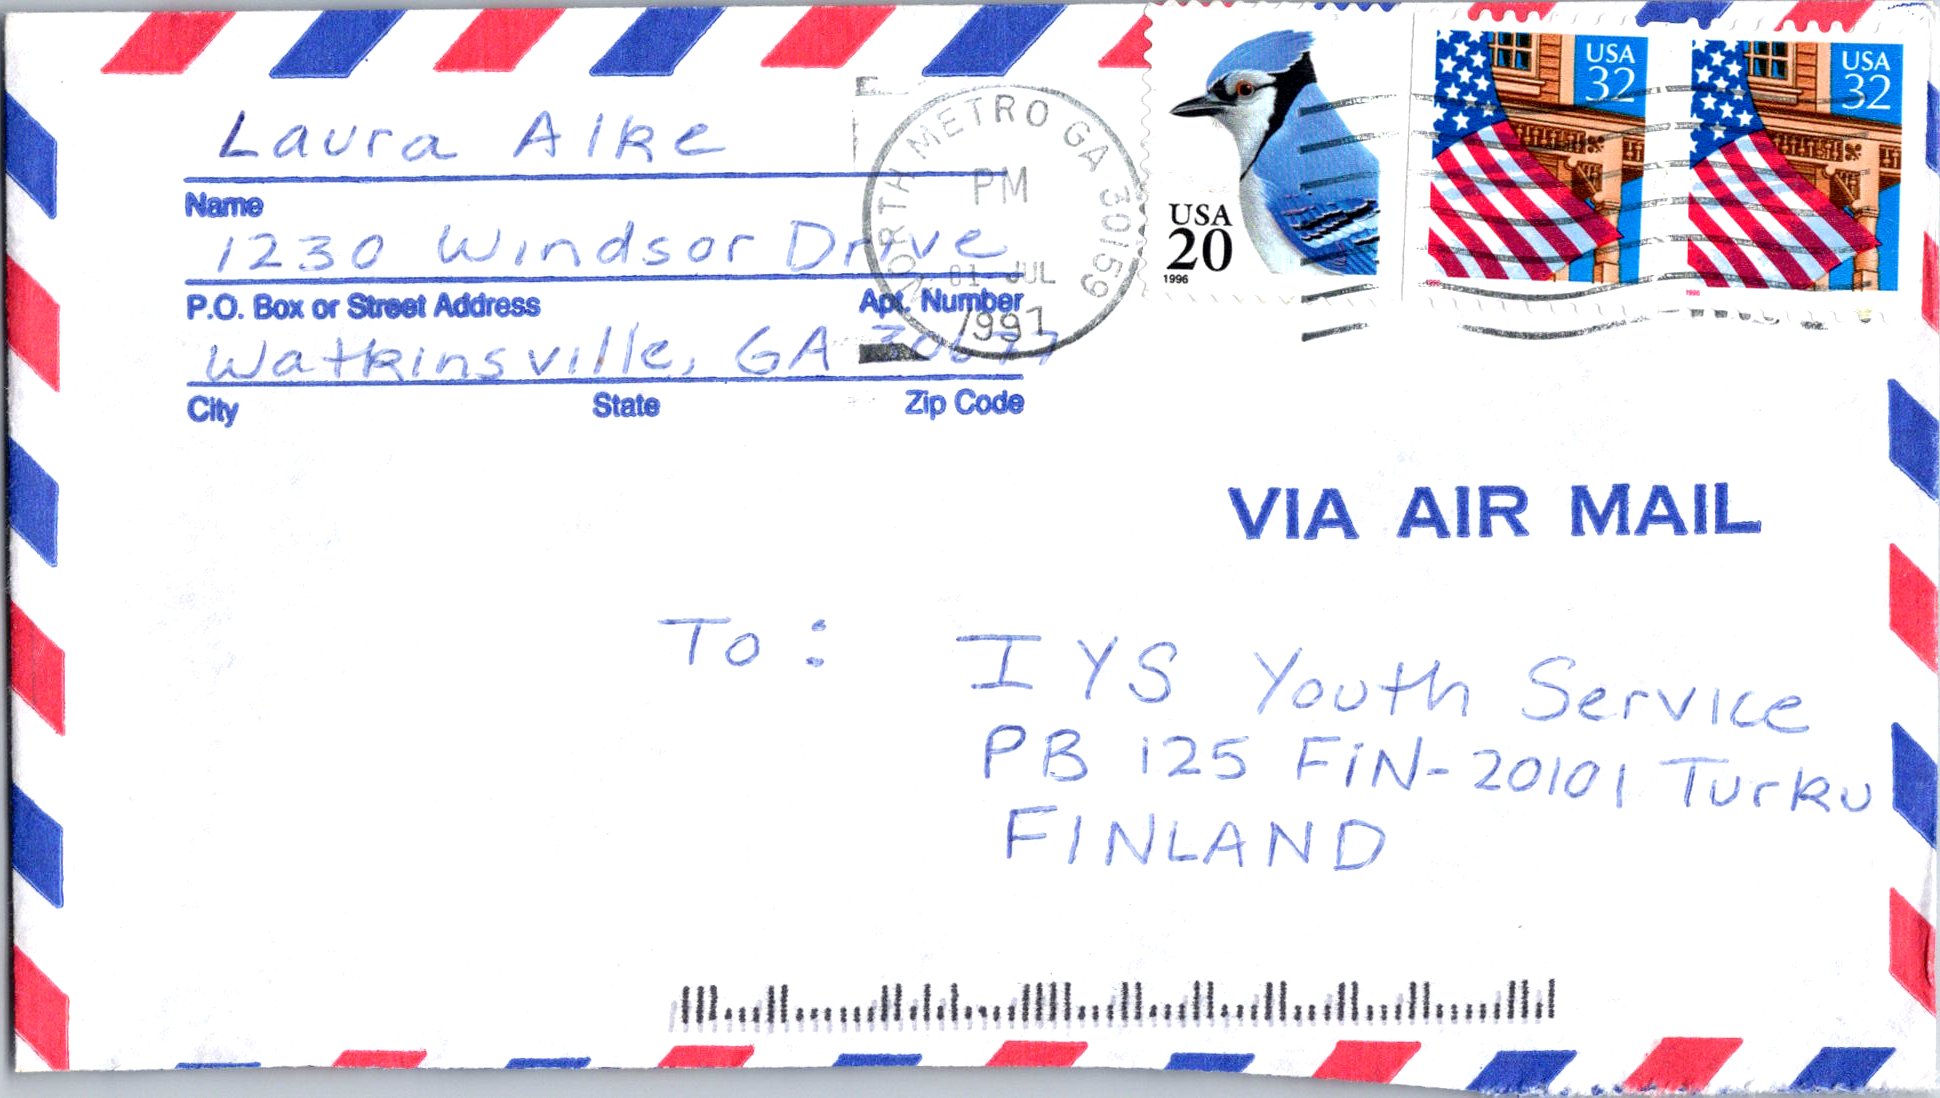 Laura Alke
Name
1230 Windsor Drive
P.O. Box or Street Address Apt. Number
Watkinsville, GA 30677
City State Zip Code
NORTH METRO GA 30159
PM
01 JUL
1997
USA
20
1996
USA
32
1996
USA
32
1996
VIA AIR MAIL
To: IYS Youth Service
PB 125 FIN-20101 Turku
FINLAND